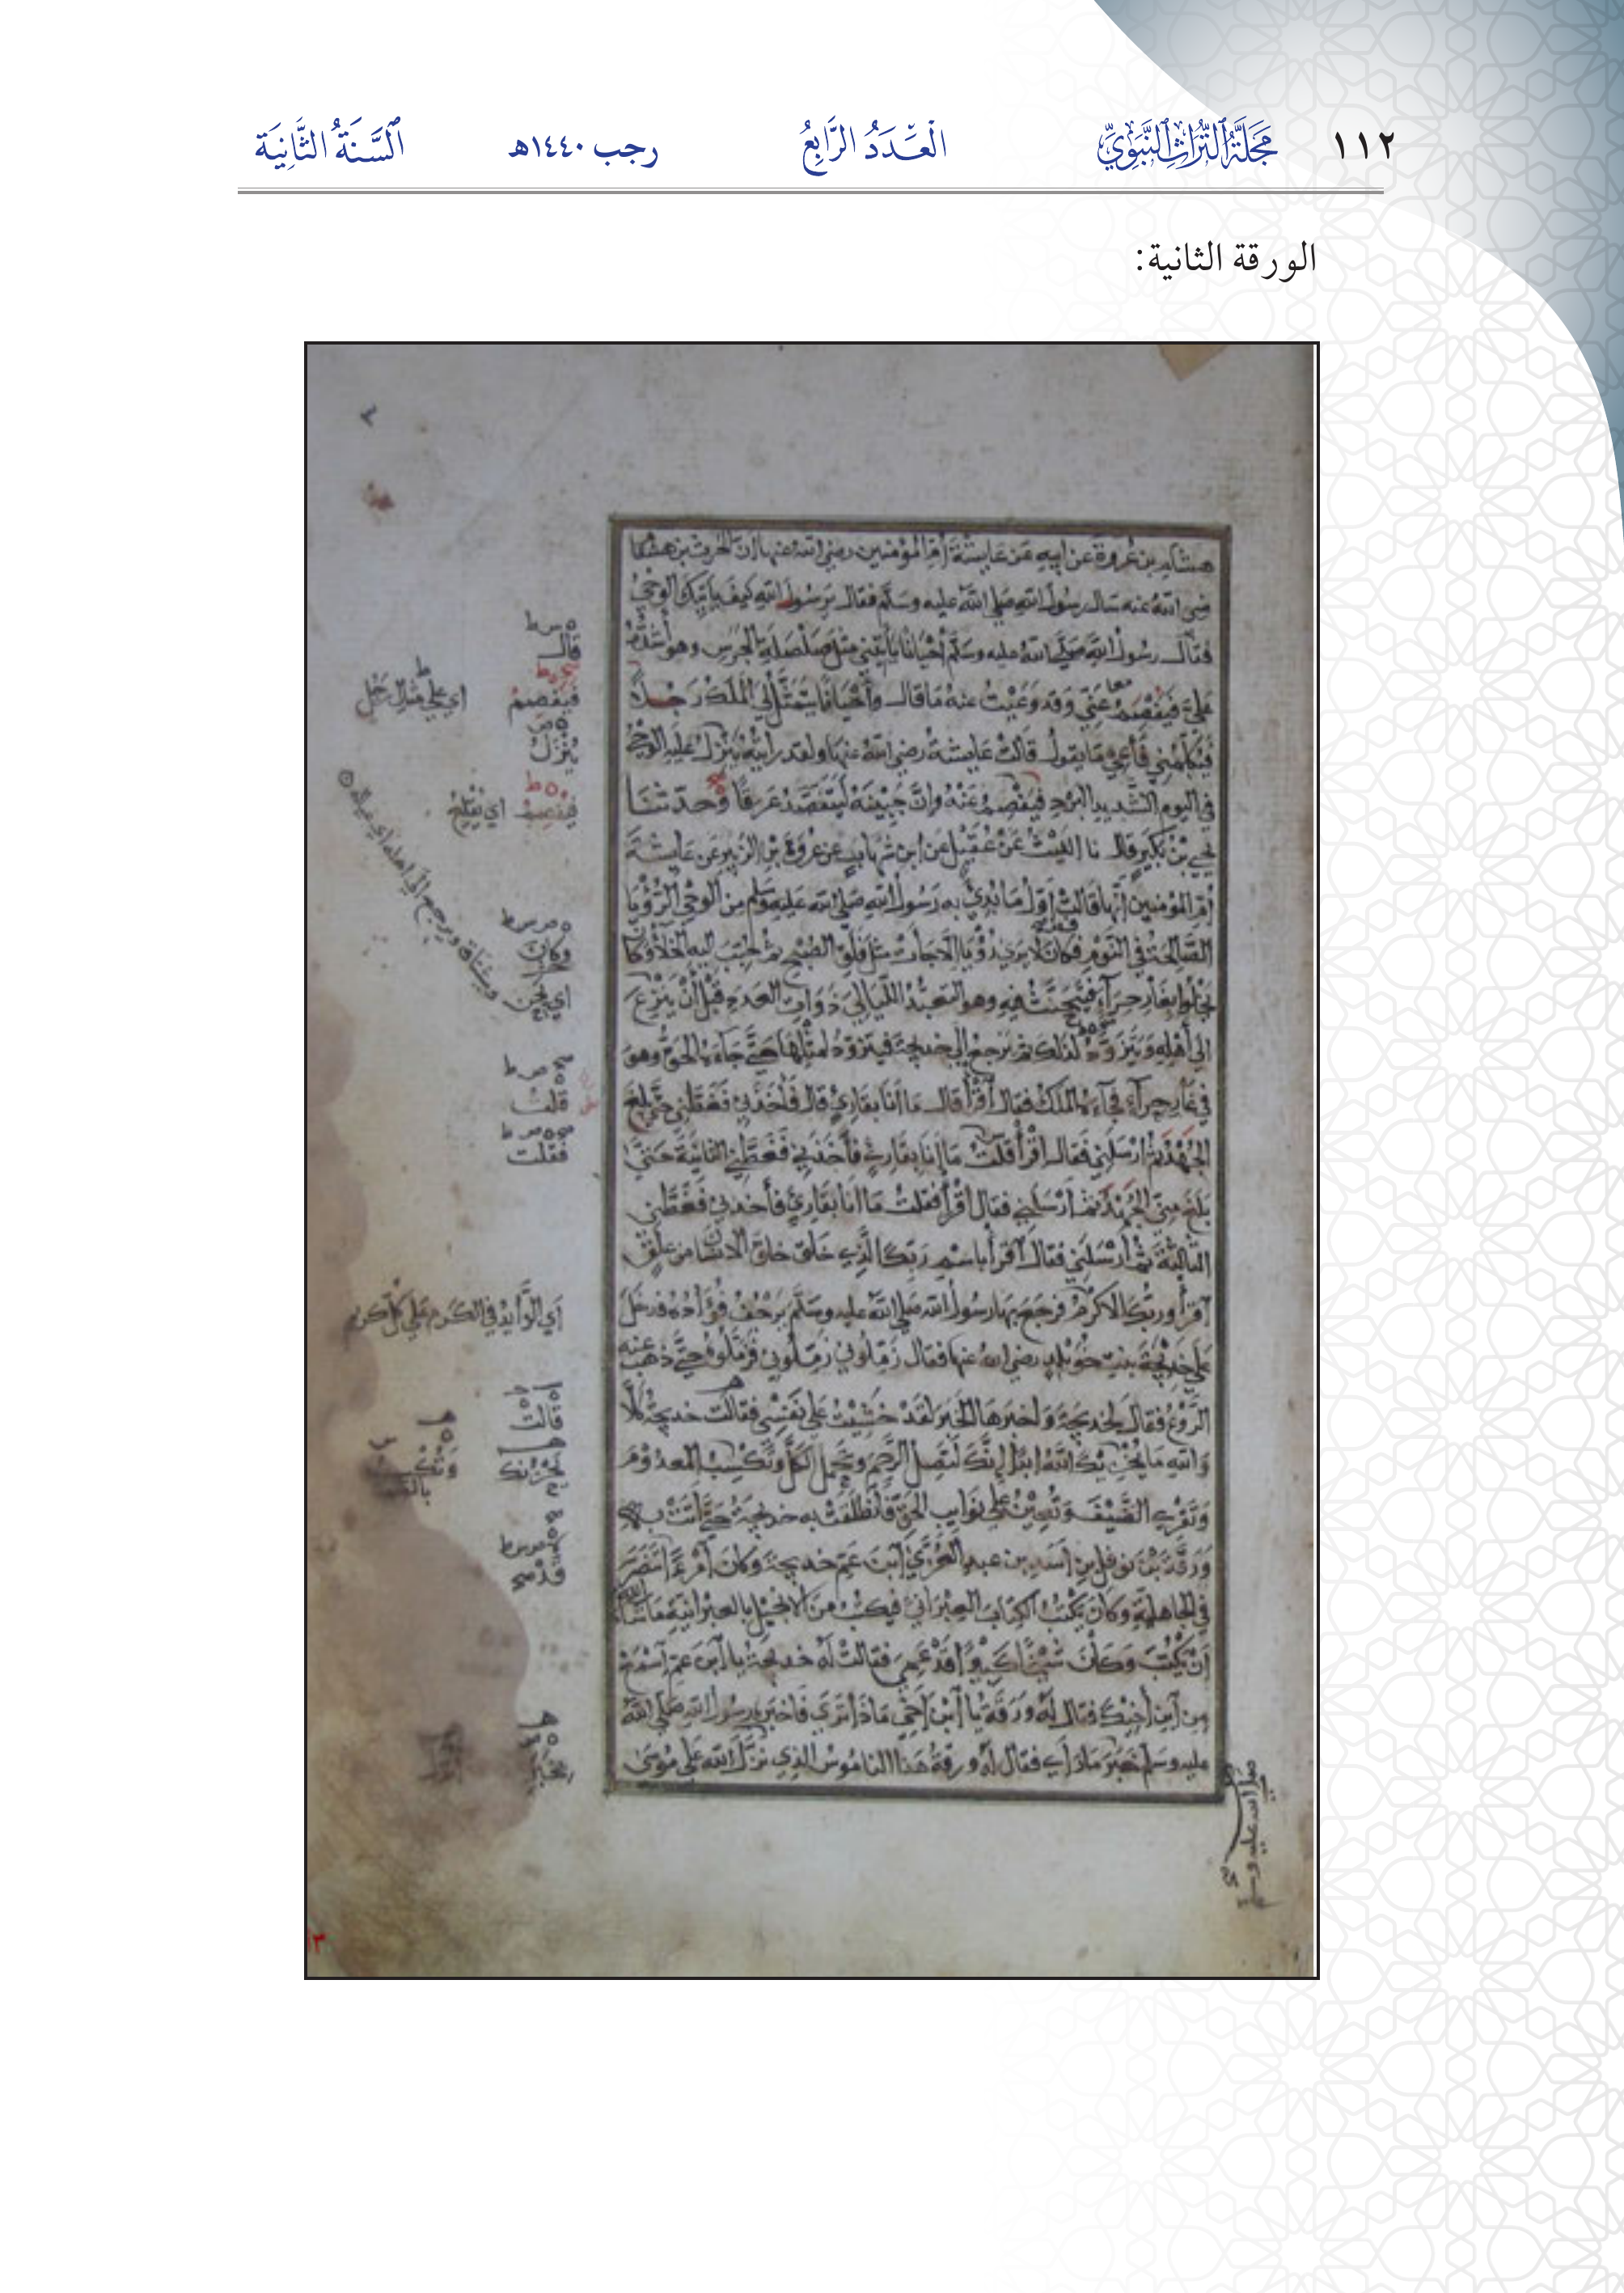 ١١٢ مَجَلَّةُ التُّرَاثِ النَّبَوِيِّ الْعَدَدُ الرَّابِعُ رجب ١٤٤٠هـ السَّنَةُ الثَّانِيَة
الورقة الثانية:
هشام بن عُروة عن ابيه عن عايشة أم المؤمنين رضي الله عنها ان الحرث بن هشام
رضي الله عنه سال رسول الله صلى الله عليه وسلم فقال يرسول الله كيف ياتيك الوحي
فقال رسول الله صلى الله عليه وسلم أحيانا يأتيني مثل صلصلة الجرس وهو أشده
علي فيفصم عني وقد وعيت عنه ما قال وأحيانا يتمثل لي الملك رجلا
فيكلمني فأعي ما يقول قالت عايشة رضي الله عنها ولقد رايته ينزل عليه الوحي
في اليوم الشديد البرد فيفصم عنه وان جبينه ليتفصد عرقا وحدثنا
يحيى بن بكير قال نا الليث عن عقيل عن ابن شهاب عن عروة بن الزبير عن عايشة
أم المؤمنين أنها قالت أول ما بدئ به رسول الله صلى الله عليه وسلم من الوحي الرؤيا
الصالحة في النوم فكان لا يرى رؤيا إلا جات مثل فلق الصبح ثم حبب اليه الخلاء وكان
يخلوا بغار حراء فيتحنث فيه وهو التعبد الليالي ذوات العدد قبل أن ينزع
الى أهله ويتزود لذلك ثم يرجع إلى خديجة فيتزود لمثلها حتى جاءه الحق وهو
في غار حراء فجاءه الملك فقال اقرأ قال ما أنا بقارئ قال فأخذني فغطني حتى بلغ
الجهد ثم ارسلني فقال اقرأ قلت ما انا بقارئ فأخذني فغطني الثانية حتى
بلغ مني الجهد ثم أرسلني فقال اقرأ فقلت ما انا بقارئ فأخذني فغطني
الثالثة ثم أرسلني فقال اقرأ باسم ربك الذي خلق خلق الانسان من علق
اقرأ وربك الاكرم فرجع بها رسول الله صلى الله عليه وسلم يرجف فؤاده فدخل
على خديجة بنت خويلد رضي الله عنها فقال زملوني زملوني فزملوه حتى ذهب عنه
الروع فقال لخديجة وأخبرها الخبر لقد خشيت على نفسي فقالت خديجة كلا
والله ما يخزيك الله ابدا إنك لتصل الرحم وتحمل الكل وتكسب المعدوم
وتقري الضيف وتعين على نوايب الحق فانطلقت به خديجة حتى أتت به
ورقة بن نوفل بن أسد بن عبد العزى ابن عم خديجة وكان امرءا تنصر
في الجاهلية وكان يكتب الكتاب العبراني فيكتب من الانجيل بالعبرانية ما شاء الله
أن يكتب وكان شيخا كبيرا قد عمي فقالت له خديجة يا ابن عم اسمع
من ابن أخيك فقال له ورقة يا ابن أخي ماذا ترى فاخبره رسول الله صلى الله
عليه وسلم خبر ما رأى فقال له ورقة هذا الناموس الذي نزل الله على موسى
قال
فيفصم
اي على مثل رجل
ينزل
اي يقلع
وكان
قلت
فقلت
اي الزايد في الكرم على كل كريم
قالت
يحزنك
صلى الله عليه وسلم
١٣